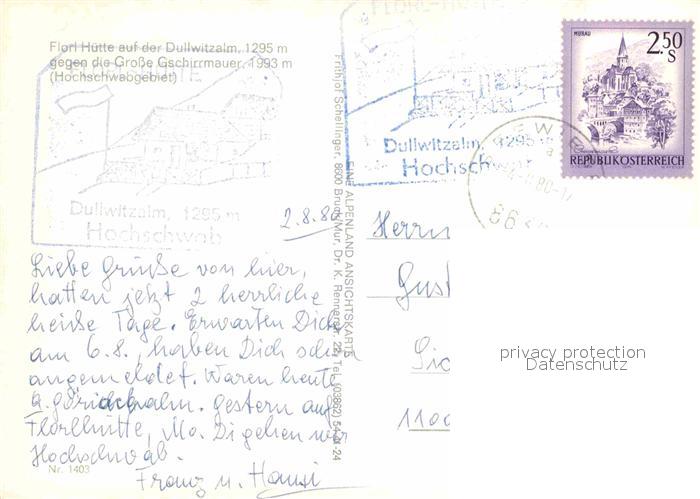 Florl Hütte auf der Dullwitzalm, 1295 m
gegen die Große Gschirrmauer, 1993 m
(Hochschwabgebiet)
Dullwitzalm, 1295 m
Hochschwab
2.8.80
Liebe Grüße von hier,
hatten jetzt 2 herrliche
heiße Tage. Erwarten Dich
am 6.8., haben Dich schon
angemeldet. Waren heute
Gestern auf
Florlhütte, Mo. Di gehen wir
Hochschwab.
Franz u. Hansi
Nr. 1403
EINE ALPENLAND ANSICHTSKARTE
Frithjof Schellinger, 8600 Bruck/Mur, Dr. K. Rennerstr. 23, Tel. (03862)
FLORL-HÜTTE
Dullwitzalm, 1295 m
Hochschwab
MURAU
2.50
S
REPUBLIK ÖSTERREICH
Herrn
Gust
1100
privacy protection
Datenschutz